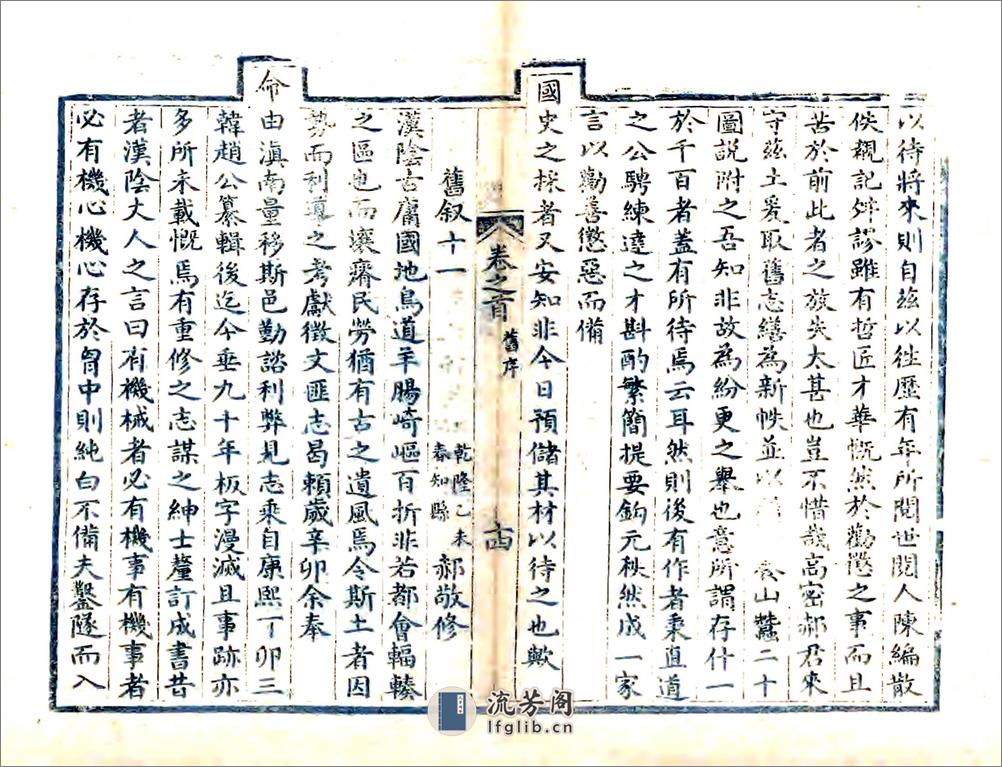 以待將來則自茲以往歷有年所閱世閱人陳編散
佚親記舛謬雖有哲匠才華慨然於勸懲之事而且
苦於前此者之放失太甚也豈不惜哉高密郝君來
守茲土爰取舊志繕為新帙並以山蠶二十
圖說附之吾知非故為紛更之舉也意所謂存什一
於千百者蓋有所待焉云耳然則後有作者秉直道
之公騁練達之才斟酌繁簡提要鈎元秩然成一家
言以勸善懲惡而備
國史之採者又安知非今日預儲其材以待之也歟
卷之首 舊序 十四
舊叙十一 乾隆乙未春知縣 郝敬修
漢陰古庸國地鳥道羊腸崎嶇百折非若都會輻輳
之區也而壤瘠民勞猶有古之遺風焉令斯土者因
勢而利導之考獻徵文匪志曷賴歲辛卯余奉
命由滇南量移斯邑勤諮利弊見志乘自康熙丁卯三
韓趙公纂輯後迄今垂九十年板字漫滅且事跡亦
多所未載慨焉有重修之志謀之紳士釐訂成書昔
者漢陰丈人之言曰有機械者必有機事有機事者
必有機心機心存於胷中則純白不備夫鑿隧而入
流芳阁
lfglib.cn